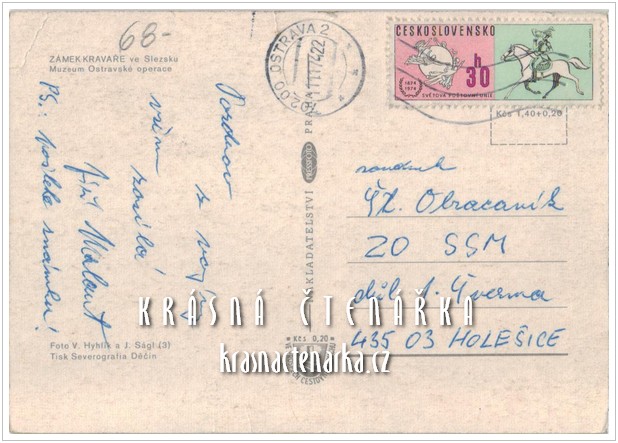 68-
ZÁMEK KRAVAŘE ve Slezsku
Muzeum Ostravské operace
702 00 OSTRAVA 2
11.11.74-22
ČESKOSLOVENSKO
30 h
1874
1974
SVĚTOVÁ POŠTOVNÍ UNIE
Kčs 1,40+0,20
Pozdrav
z vojny
vám
zasílá
Jiří
PS: pošlete známku!
NAKLADATELSTVÍ PRESSFOTO PRAHA
soudruh
Obracaník
ZO SSM
důl J. Šverma
435 03 HOLEŠICE
KRÁSNÁ ČTENÁŘKA
krasnactenarka.cz
Foto V. Hyhlík a J. Ságl (3)
Tisk Severografia Děčín
Kčs 0,20